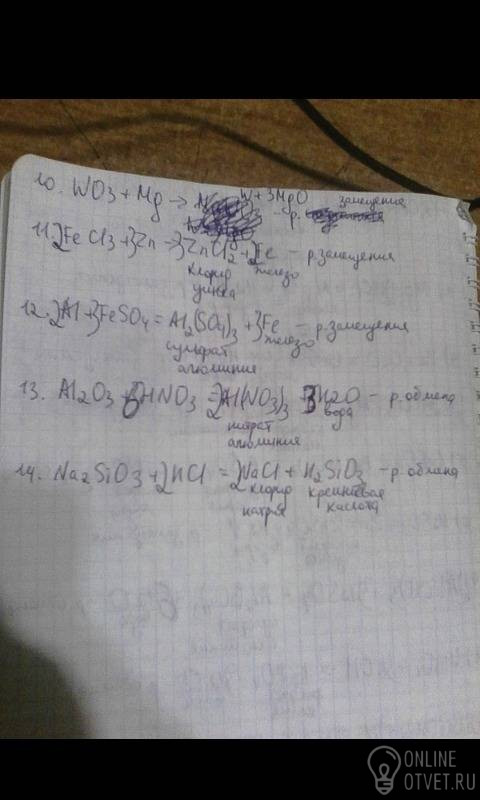 10. WO3 + Mg → W + 3MgO - р. замещения
11. 2FeCl3 + 3Zn → 3ZnCl2 + 2Fe - р. замещения
хлорид железо
цинка
12. 2Al + 3FeSO4 = Al2(SO4)3 + 3Fe - р. замещения
сульфат железо
алюминия
13. Al2O3 + 6HNO3 = 2Al(NO3)3 + 3H2O - р. обмена
нитрат вода
алюминия
14. Na2SiO3 + 2HCl = 2NaCl + H2SiO3 - р. обмена
хлорид кремниевая
натрия кислота
ONLINE
OTVET.RU